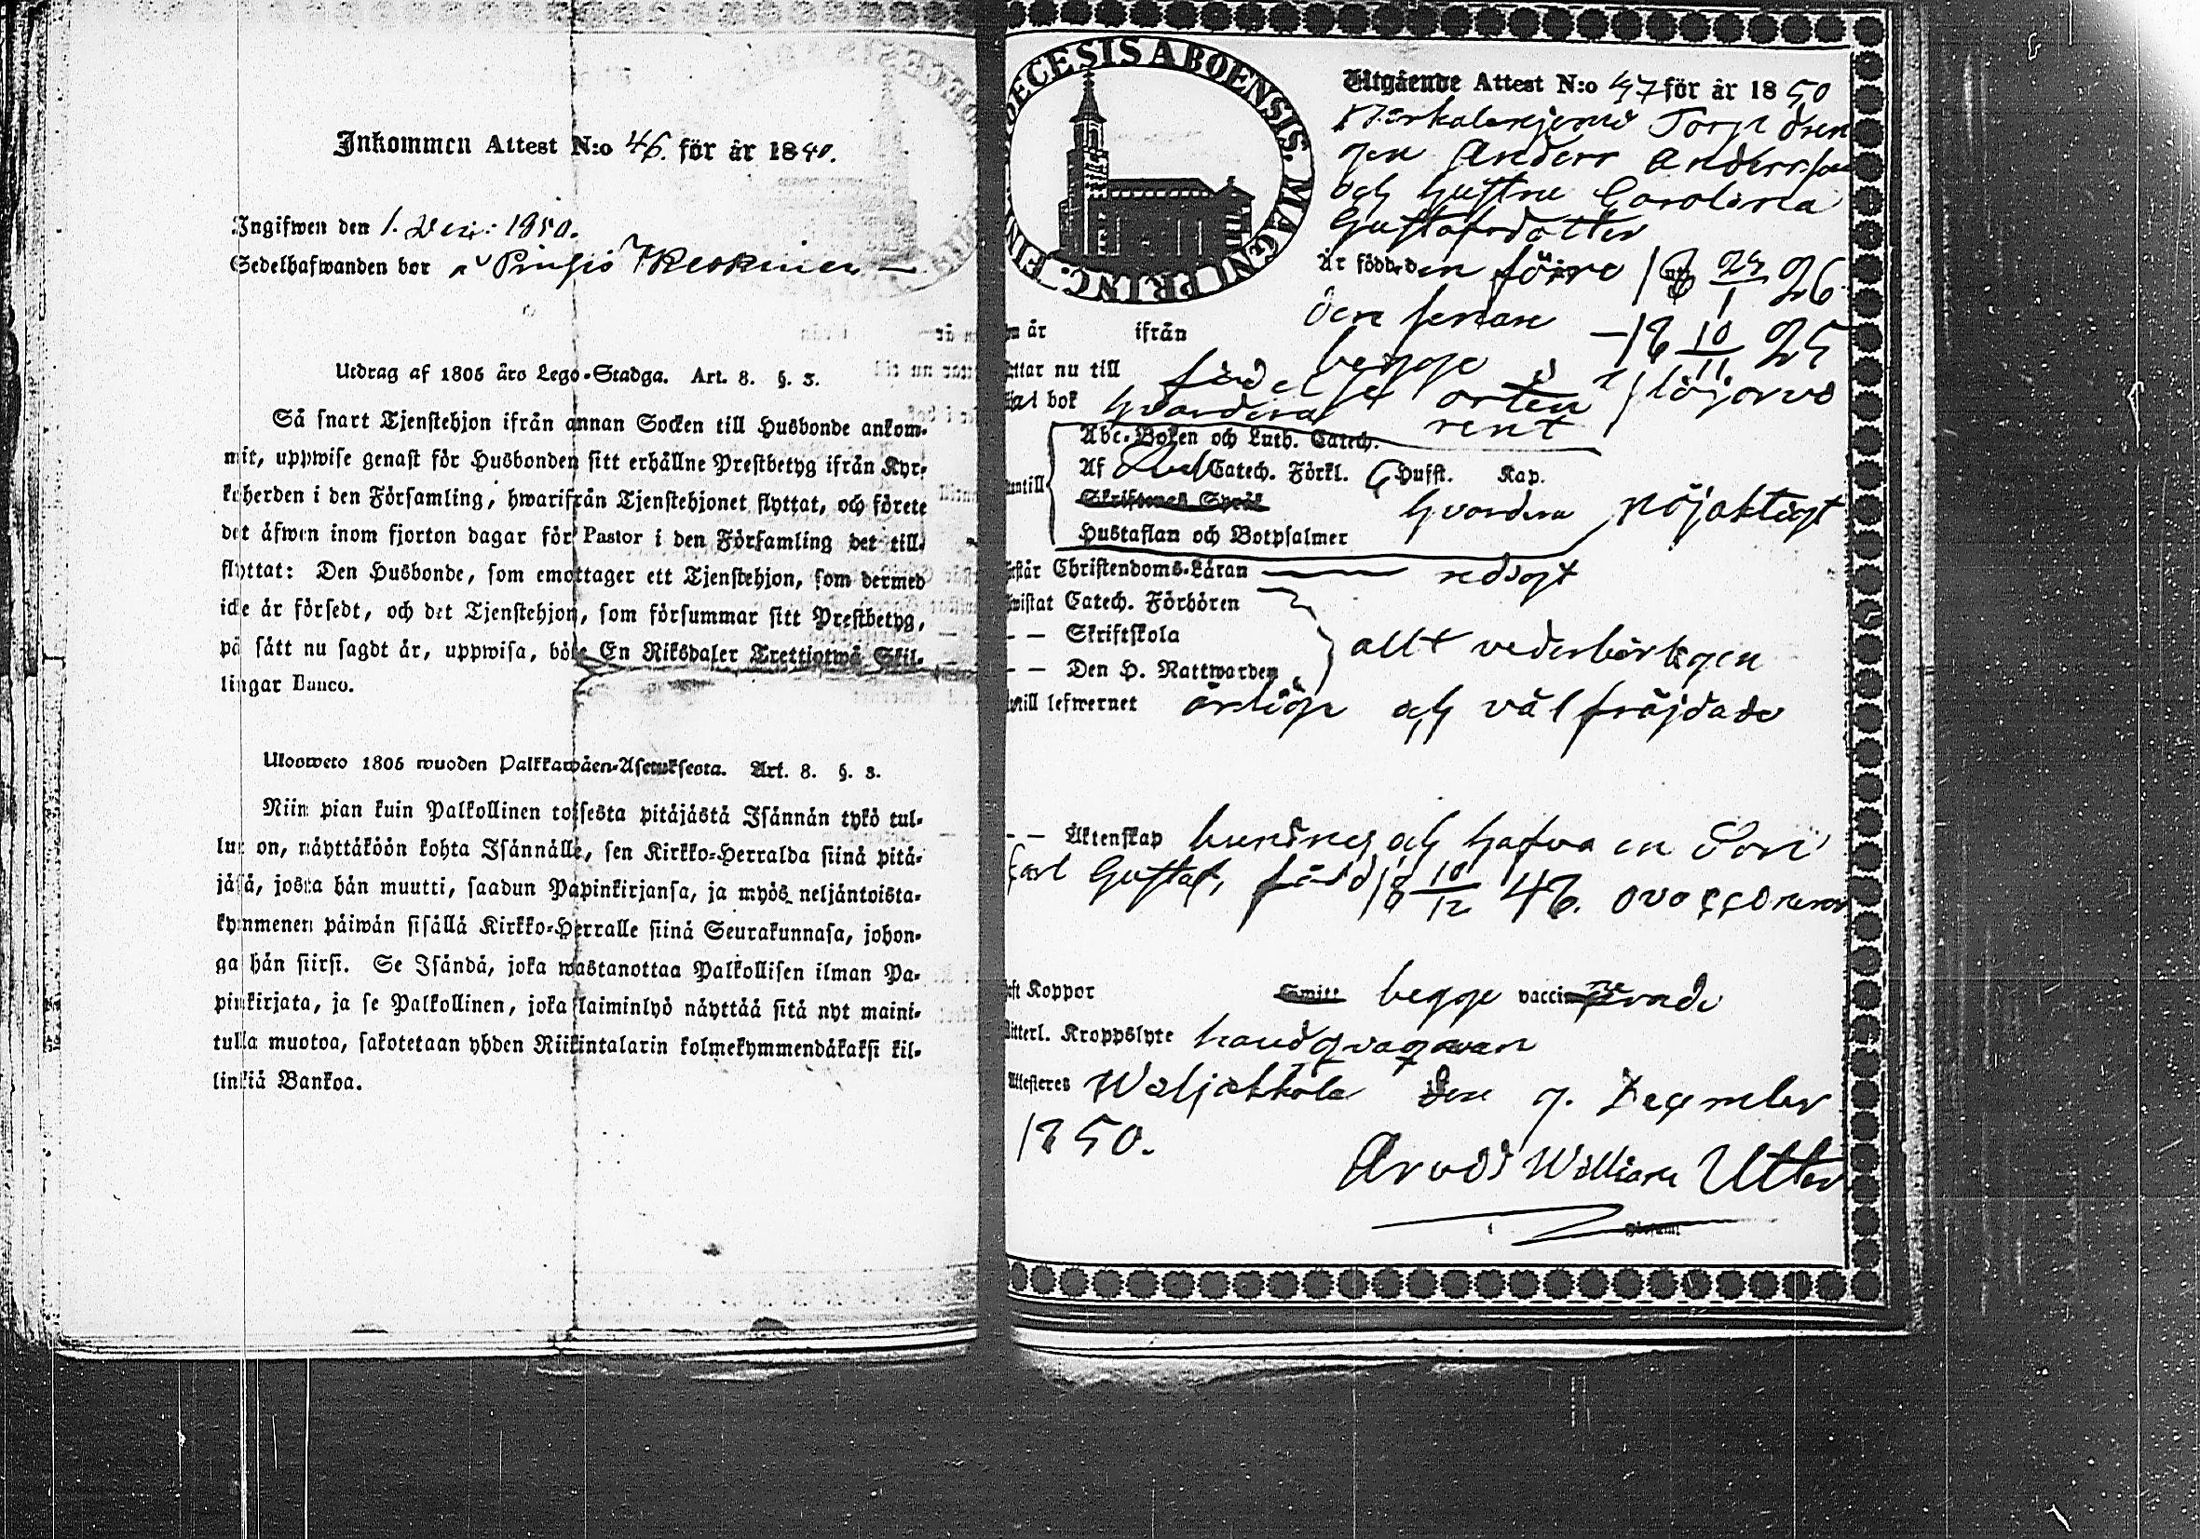 Inkommen Attest N:o 46. för år 1840.
Ingifwen den 1. 1850.
Sedelhafwanden bor
Utdrag af 1805 års Lego-Stadga. Art. 8. §. 3.
Så snart Tjenstehjon ifrån annan Socken till Husbonde ankom-
mit, uppwise genast för Husbonden sitt erhållne Prestbetyg ifrån Kyr-
koherden i den Församling, hwarifrån Tjenstehjonet flyttat, och förete
det äfwen inom fjorton dagar för Pastor i den Församling det till-
flyttat: Den Husbonde, som emottager ett Tjenstehjon, som dermed
icke är försedt, och det Tjenstehjon, som försummar sitt Prestbetyg,
på sätt nu sagdt är, uppwisa, böte En Riksdaler Trettiotwå Skil-
lingar Banco.
Uloosweto 1805 wuoden Palkkawäen-Asetuksesta. Art. 8. §. 3.
Niin pian kuin Palkollinen toisesta pitäjästä Isännän tykö tul-
lut on, näyttäköön kohta Isännälle, sen Kirkko-Herralda siinä pitä-
jäsä, josta hän muutti, saadun Papinkirjansa, ja myös neljäntoista-
kymmenen päiwän sisällä Kirkko-Herralle siinä Seurakunnasa, johon-
ga hän siirsi. Se Isändä, joka wastanottaa Palkollisen ilman Pa-
pinkirjata, ja se Palkollinen, joka laiminlyö näyttää sitä nyt maini-
tulla muotoa, sakotetaan yhden Riikintalarin kolmekymmendäkaksi kil-
lingiä Bankoa.
DIŒCESIS ABOENSIS. MAGNI PRINC. FIN
Utgående Attest N:o 47 för år 1850
Torp dren
gen Anders Andersson
och hustru Carolina
Gustafsdotter
Är födde den förre 18 24/1 26
den senare – 18 10/11 25
år ifrån
flyttar nu till begge
bok födelse orten
hvardera rent
Abc-Boken och Luth. Catech.
Af Catech. Förkl. Hufst. Kap.
Skriftenes Språk hvardera nöjaktigt
Hustaflan och Botpsalmer
Förstår Christendoms-Läran redigt
Bewistat Catech. Förhören
– – Skriftskola allt vederbörligen
– – Den H. Nattwarden
till lefwernet ärliga och väl fräjdade
– – Äktenskap bundna och hafva en Son
Carl Gustaf, född 18 10/12 48. ovaccinerad
Haft Koppor Smitt begge vaccinerade
Ytterl. Kroppslyte
Attesteres Waljakkala den 7. December
1850.
Arvid William Utter